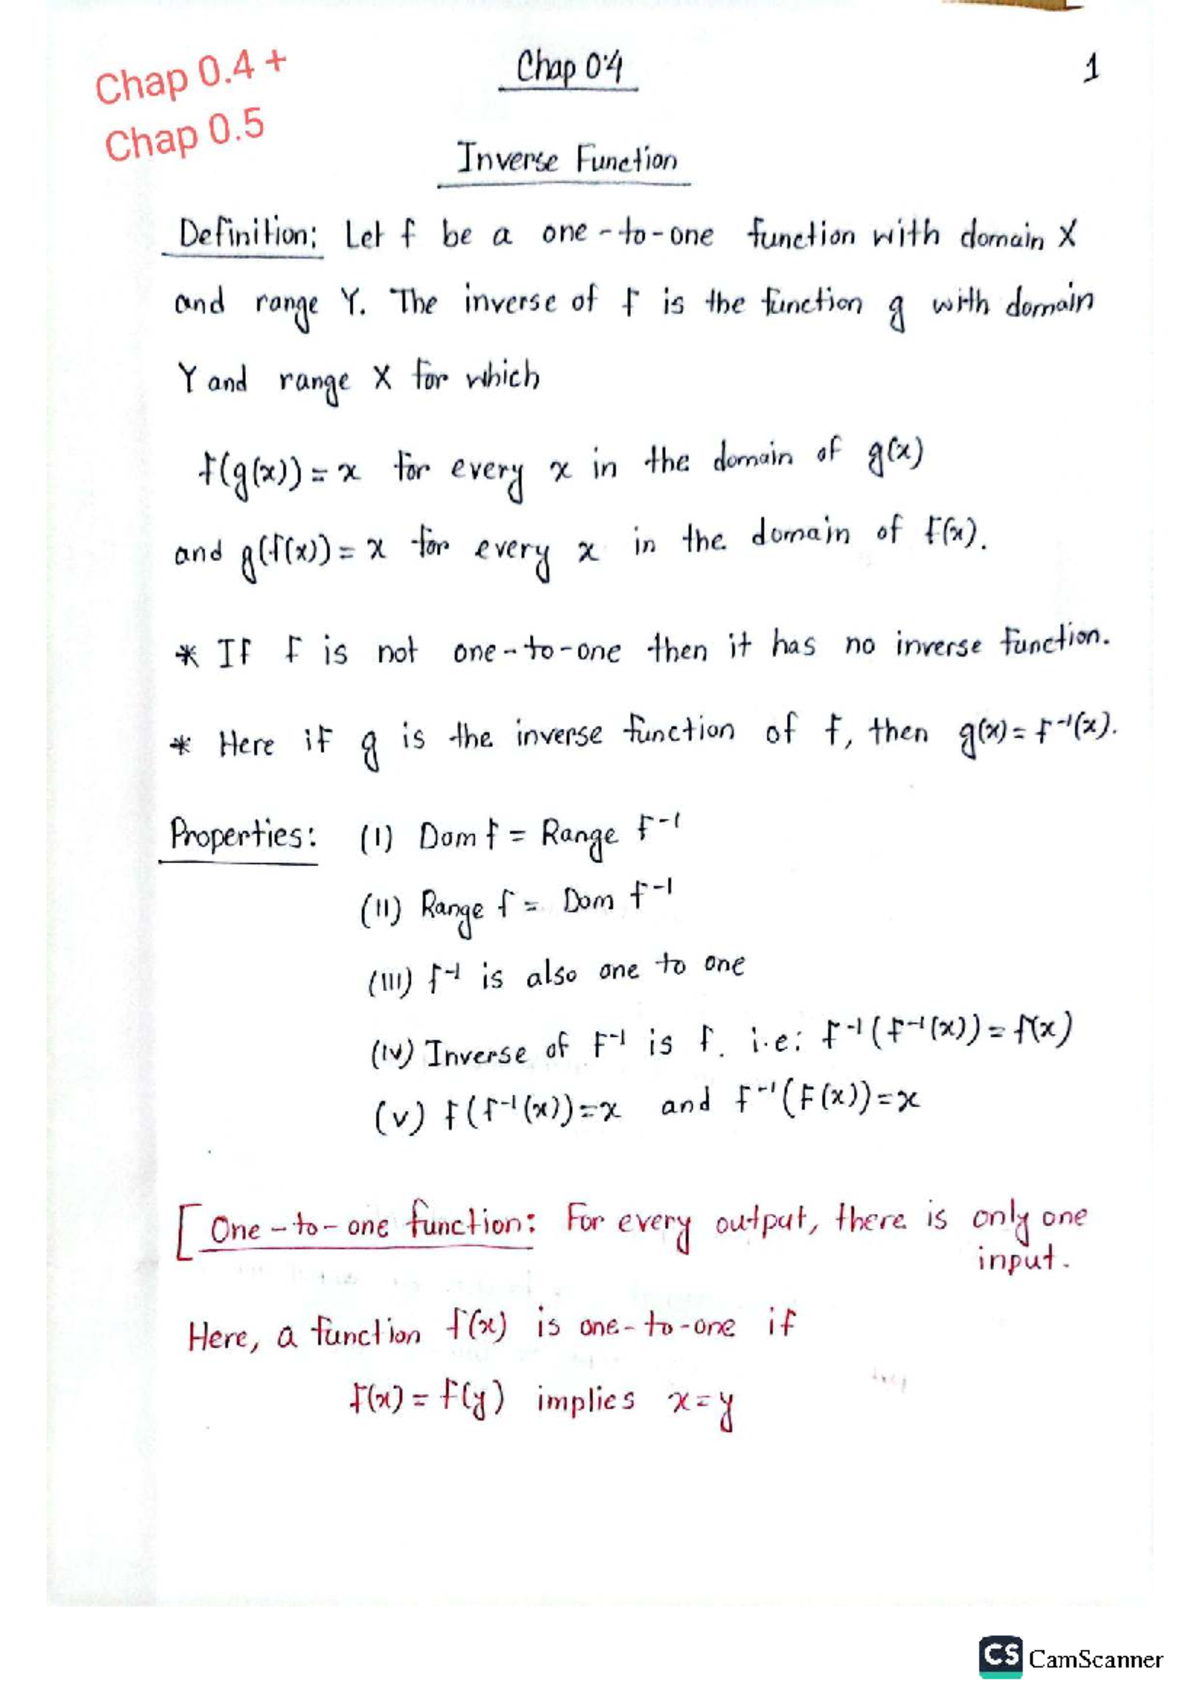 Chap 0.4 +
Chap 0.5
Chap 0.4
1
Inverse Function
Definition: Let f be a one-to-one function with domain X
and range Y. The inverse of f is the function g with domain
Y and range X for which
f(g(x)) = x for every x in the domain of g(x)
and g(f(x)) = x for every x in the domain of f(x).
* If f is not one-to-one then it has no inverse function.
* Here if g is the inverse function of f, then g(x) = f⁻¹(x).
Properties: (I) Dom f = Range f⁻¹
(II) Range f = Dom f⁻¹
(III) f⁻¹ is also one to one
(IV) Inverse of f⁻¹ is f. i.e: f⁻¹(f⁻¹(x)) = f(x)
(V) f(f⁻¹(x)) = x and f⁻¹(f(x)) = x
[One-to-one function: For every output, there is only one
input.
Here, a function f(x) is one-to-one if
f(x) = f(y) implies x = y
CS CamScanner